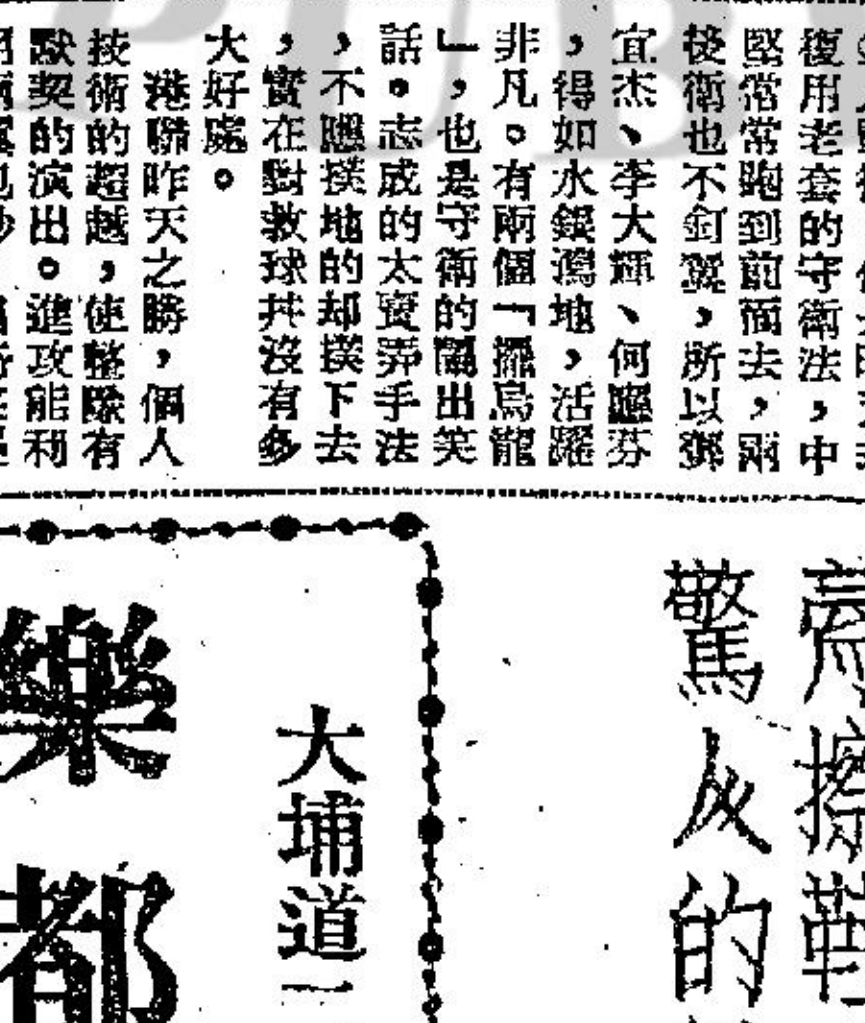 復用老套的守衛法，中
堅常常跑到前面去，兩
後衛也不釘翼，所以鄧
宜杰、李大輝、何應芬
，得如水銀瀉地，活躍
非凡。有兩個「擺烏龍
」，也是守衛的鬧出笑
話。志成的太賣弄手法
，不應撲地的却撲下去
，實在對救球并沒有多
大好處。
港聯昨天之勝，個人
技術的超越，使整隊有
默契的演出。進攻能利
擦鞋
驚人的
大埔道一
樂都